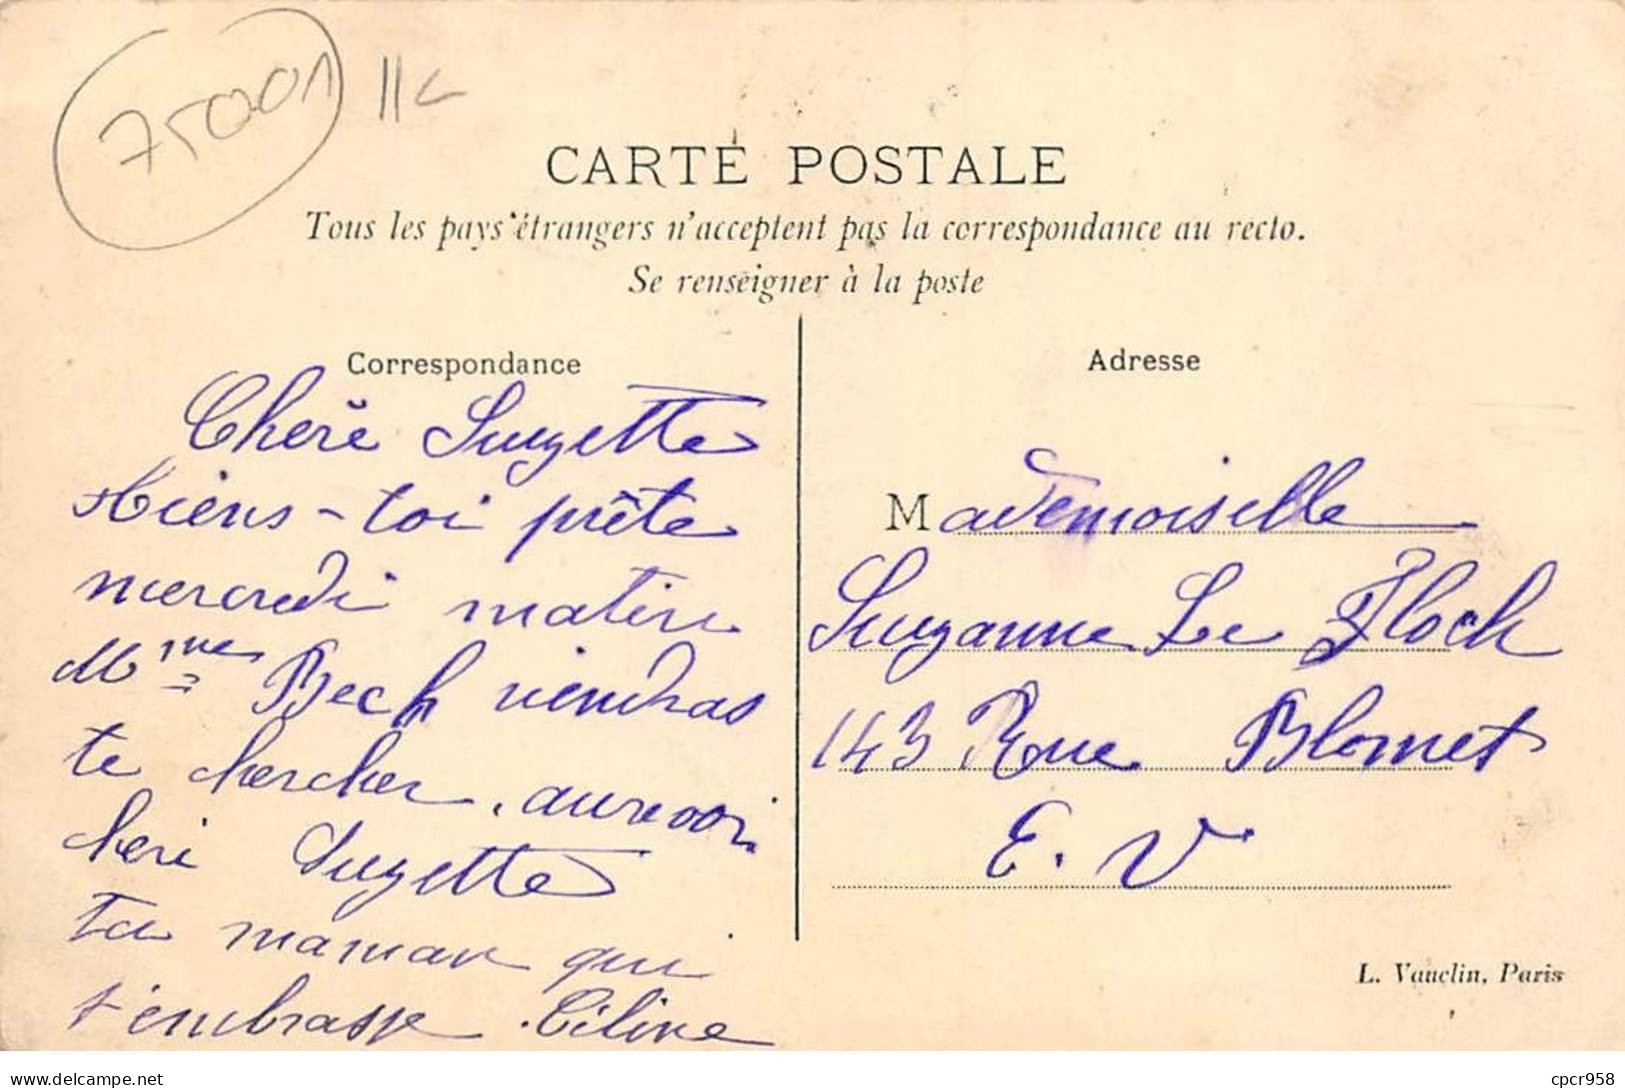 75001 11c
CARTE POSTALE
Tous les pays étrangers n'acceptent pas la correspondance au recto.
Se renseigner à la poste
Correspondance
Chère Suzette
tiens-toi prête
mercredi matin
Mme Bech viendras
te chercher, aurevoir
cheri Suzette
ta maman qui
t'embrasse. Céline
Adresse
Mademoiselle
Suzanne Le Floch
143 Rue Blomet
E. V
L. Vauclin, Paris
delcampe.net
cpcr958